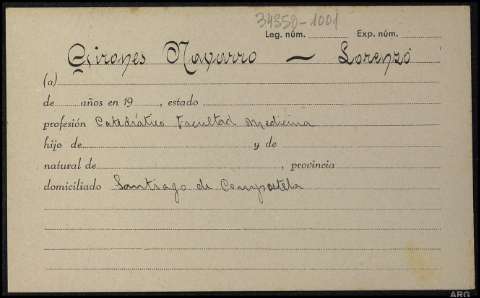 34358-1001
Leg. núm. Exp. núm.
Girones Navarro — Lorenzo
(a)
de años en 19 , estado
profesión Catedrático Facultad Medicina
hijo de y de
natural de , provincia
domiciliado Santiago de Compostela
ARG